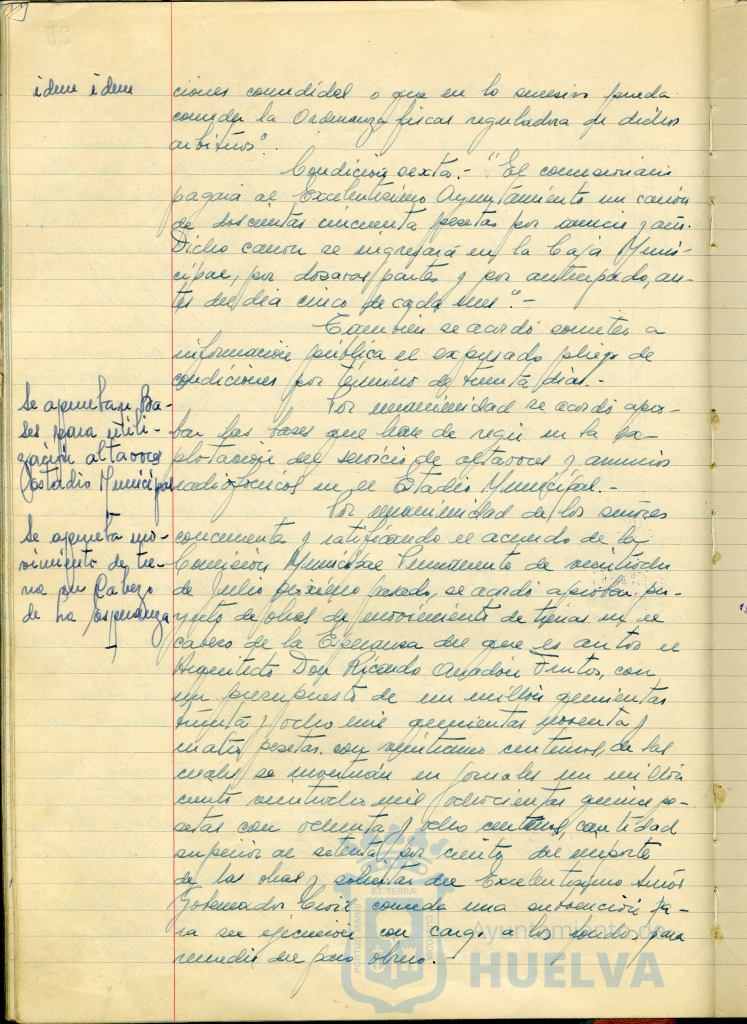 idem idem
ciones concedidas o que en lo sucesivo pueda
conceda la Ordenanza fiscal reguladora de dichos
arbitrios".
Condición sexta.- "El concesionario
pagará al Excelentísimo Ayuntamiento un canon
de doscientas cincuenta pesetas por anuncio y año.
Dicho canon se ingresará en la Caja Muni-
cipal, por dozavas partes y por anticipado, an-
tes del día cinco de cada mes".-
También se acordó someter a
información pública el expresado pliego de
condiciones por término de treinta días.-
Se aprueban Ba-
ses para utili-
zación altavoces
Estadio Municipal
Por unanimidad se acordó apro-
bar las bases que han de regir en la ex-
plotación del servicio de altavoces y anuncios
radiofónicos en el Estadio Municipal.-
Se aprueba mo-
vimiento de tie-
rra en Cabezo
de la Esperanza
Por unanimidad de los señores
concurrentes y ratificando el acuerdo de la
Comisión Municipal Permanente de veintiocho
de Julio próximo pasado, se acordó aprobar pro-
yecto de obras de movimiento de tierras en el
cabezo de la Esperanza del que es autor el
Arquitecto Don Ricardo Anadón Frutos, con
un presupuesto de un millón quinientas
treinta y ocho mil quinientas noventa y
cuatro pesetas con veinticinco centimos, de las
cuales se invertirán en jornales un millón
ciento veintiocho mil ochocientas quince pe-
setas con ochenta y ocho centimos, cantidad
superior al setenta por ciento del importe
de las obras y solicitar del Excelentísimo Señor
Gobernador Civil conceda una subvención pa-
ra su ejecución con cargo a los fondos para
remedio del paro obrero.-
Ayuntamiento de
HUELVA